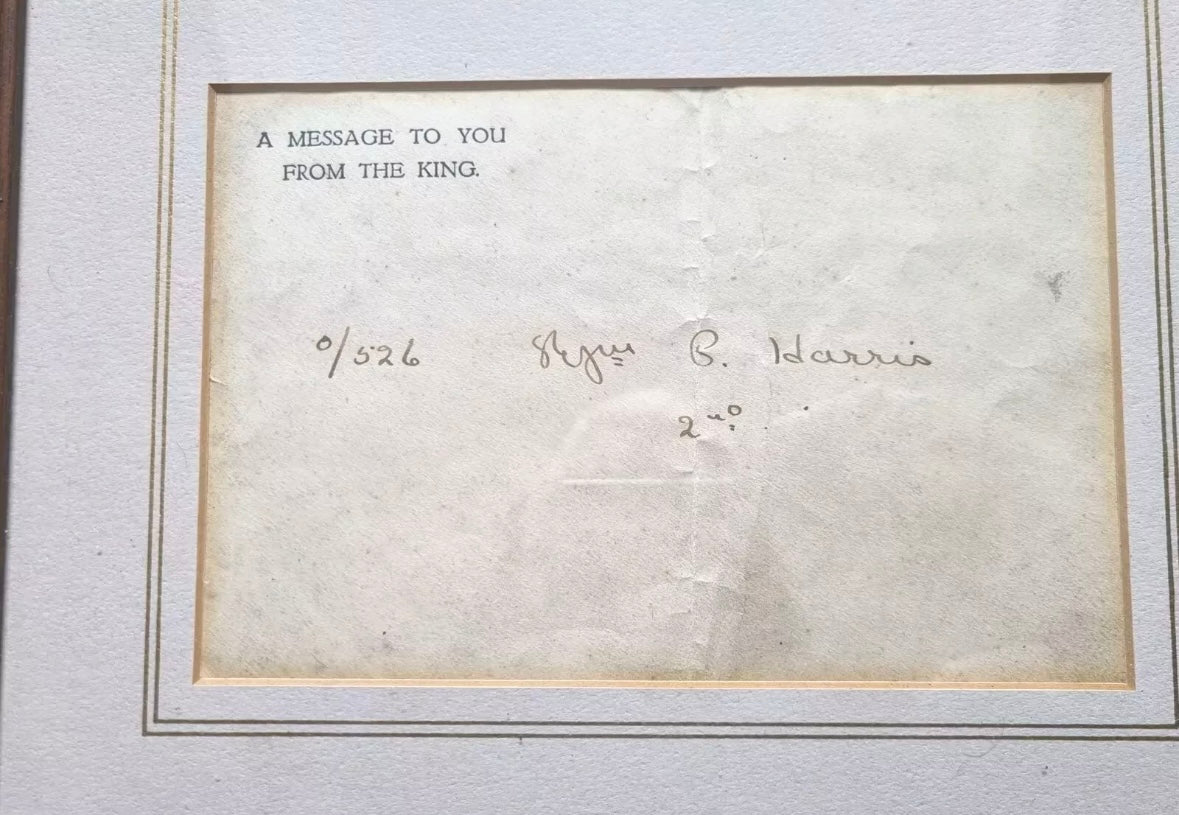 A MESSAGE TO YOU
FROM THE KING.
0/526 Rfmn B. Harris
2nd